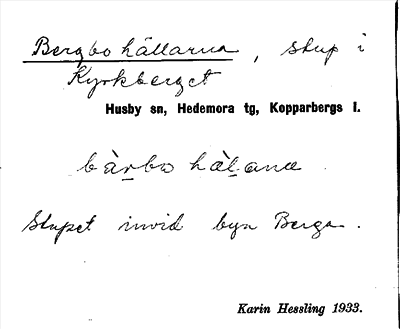 Bergbohällarna, stup i
Kyrkberget
Husby sn, Hedemora tg, Kopparbergs l.
bàrbo hàlana.
Stupet invid byn Berga.
Karin Hessling 1933.